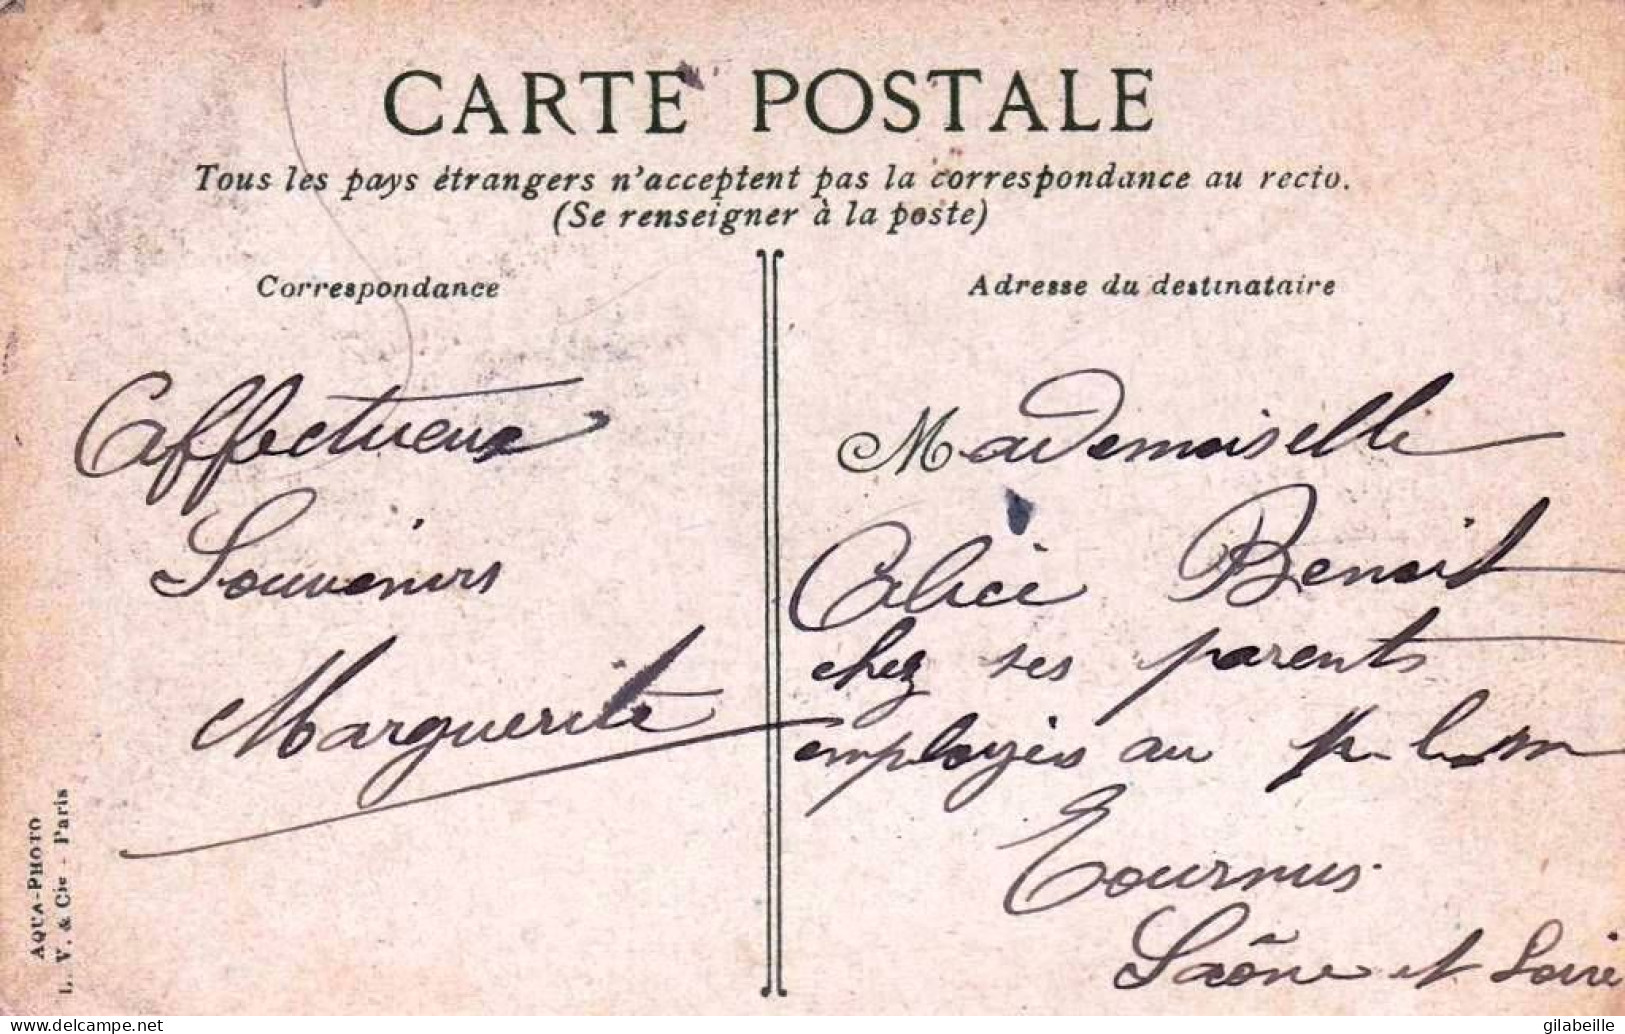 CARTE POSTALE
Tous les pays étrangers n'acceptent pas la correspondance au recto.
(Se renseigner à la poste)
Correspondance
Affectueux
Souvenirs
Marguerite
Adresse du destinataire
Mademoiselle
Alice Benoit
chez ses parents
employés au
Tournus
Saône et Loire
AQUA-PHOTO
L. V. & Cie - Paris
delcampe.net
gilabeille